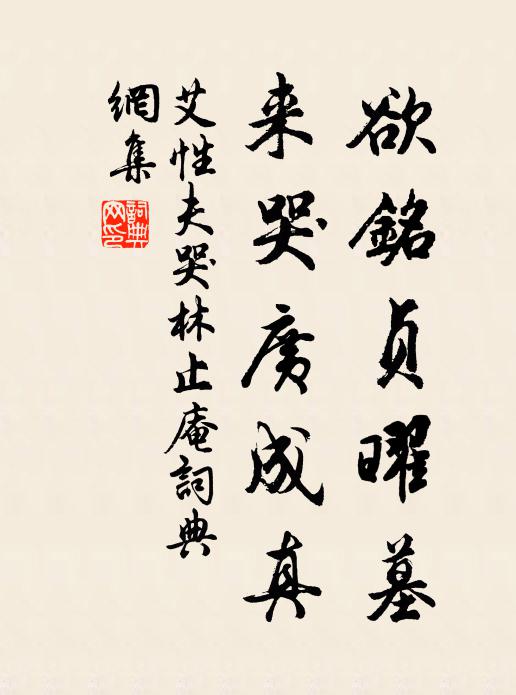 欲銘貞曜墓
来哭廣成真
艾性夫哭林止庵詞典
網集
詞典
网印